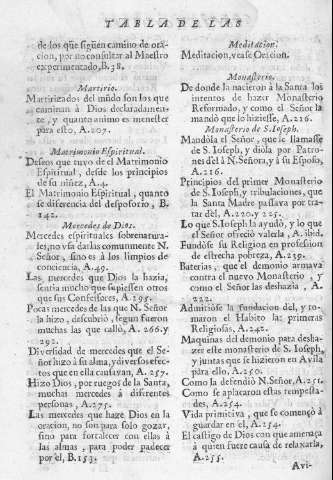 TABLA DE LAS
de los que siguen camino de ora-
cion, por no consultar al Maestro
experimentado, B.38.
Martirio.
Martirizados del mũdo son los que
caminan à Dios declaradamen-
te, y quanto animo es menester
para esto, A.207.
Matrimonio Espiritual.
Deseos que tuvo de el Matrimonio
Espiritual, desde los principios
de su niñez, A.4.
El Matrimonio Espiritual, quanto
se diferencia del desposorio, B.
142.
Mercedes de Dios.
Mercedes espirituales sobrenatura-
les, no vsa darlas comunmente N.
Señor, sino es à los limpios de
conciencia, A.49.
Las mercedes que Dios la hazia,
sentia mucho que supiessen otros
que sus Confessores, A.295.
Pocas mercedes de las que N. Señor
la hizo, descubriò, segun fueron
muchas las que callò, A.266. y
292.
Diversidad de mercedes que el Se-
ñor hizo à su alma, y diversos efec-
tos que en ella causavan, A.257.
Hizo Dios, por ruegos de la Santa,
muchas mercedes à diferentes
personas, A.275.
Las mercedes que haze Dios en la
oracion, no son para solo gozar,
sino para fortalecer con ellas à
las almas, para poder padecer
por èl, B.153.
Meditacion.
Meditacion, vease Oracion.
Monasterio.
De donde la nacieron à la Santa los
intentos de hazer Monasterio
Reformado, y como el Señor la
mandò que lo hiziesse, A.216.
Monasterio de S. Ioseph.
Mandòla el Señor, que le llamasse
de S. Ioseph, y diòla por Patro-
nes dèl à N. Señora, y à su Esposo,
A.216.
Principios del primer Monasterio
de S. Ioseph, y tribulaciones, que
la Santa Madre passava por tra-
tar dèl, A.220. y 225.
Lo que S. Ioseph la ayudò, y lo que
el Señor ofreciò valerla, A. ibid.
Fundòse su Religion en profession
de estrecha pobreza, A.239.
Baterias, que el demonio armava
contra el nuevo Monasterio, y
como el Señor las deshazia, A.
222.
Admitiòse la fundacion del, y to-
maron el Habito las primeras
Religiosas, A.242.
Maquinas del demonio para desha-
zer este monasterio de S. Ioseph,
y juntas que se hizieron en Avila
para ello, A.250.
Como la defendiò N. Señor, A.251.
Como se aplacaron estas tempesta-
des, A.254.
Vida primitiva, que se començò à
guardar en èl, A.254.
El castigo de Dios con que amenaça
à quien fuere causa de relaxarla,
A.255.
Avi-